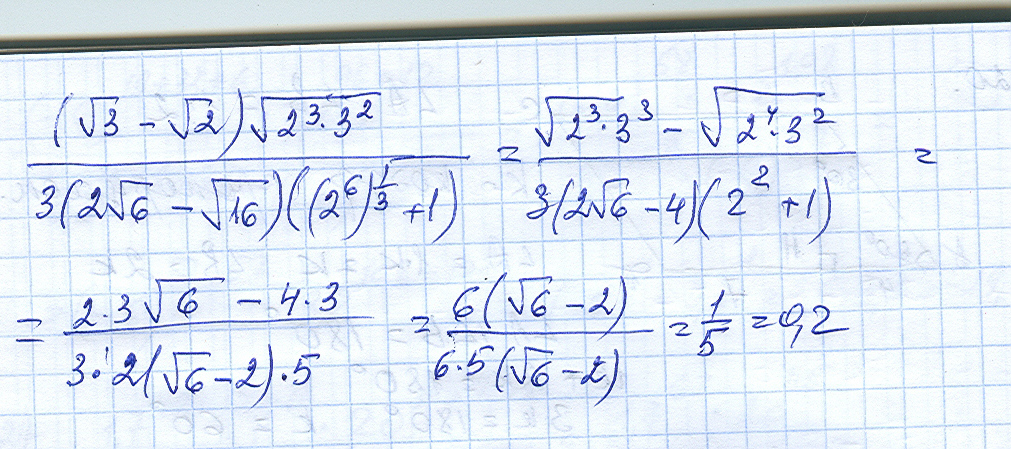 ((√3 - √2)√(2³·3²)) / (3(2√6 - √16)((2⁶)^(1/3) + 1)) = (√(2³·3³) - √(2⁴·3²)) / (3(2√6 - 4)(2² + 1)) =
= (2·3√6 - 4·3) / (3·2(√6 - 2)·5) = (6(√6 - 2)) / (6·5(√6 - 2)) = 1/5 = 0,2